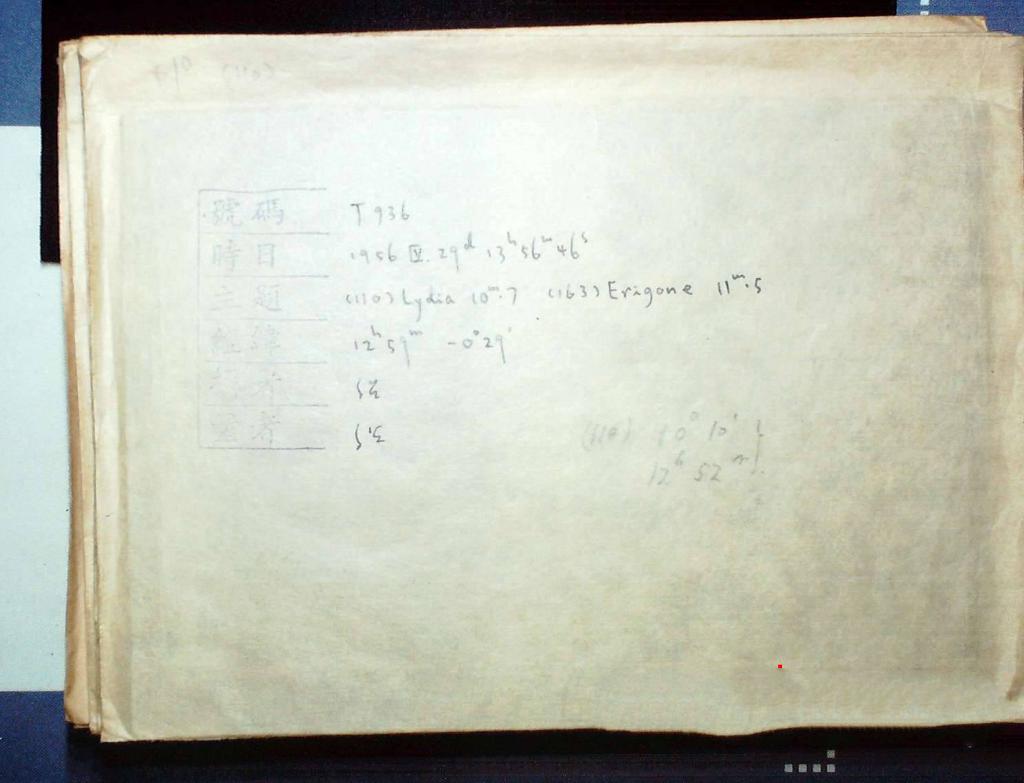 (110)
號碼 T 936
時日 1956 IV. 29d 13h 56m 46s
主題 (110) Lydia 10m.7 (163) Erigone 11m.5
經緯 12h 59m -0°29'
(110) 10° 10'
12h 52m